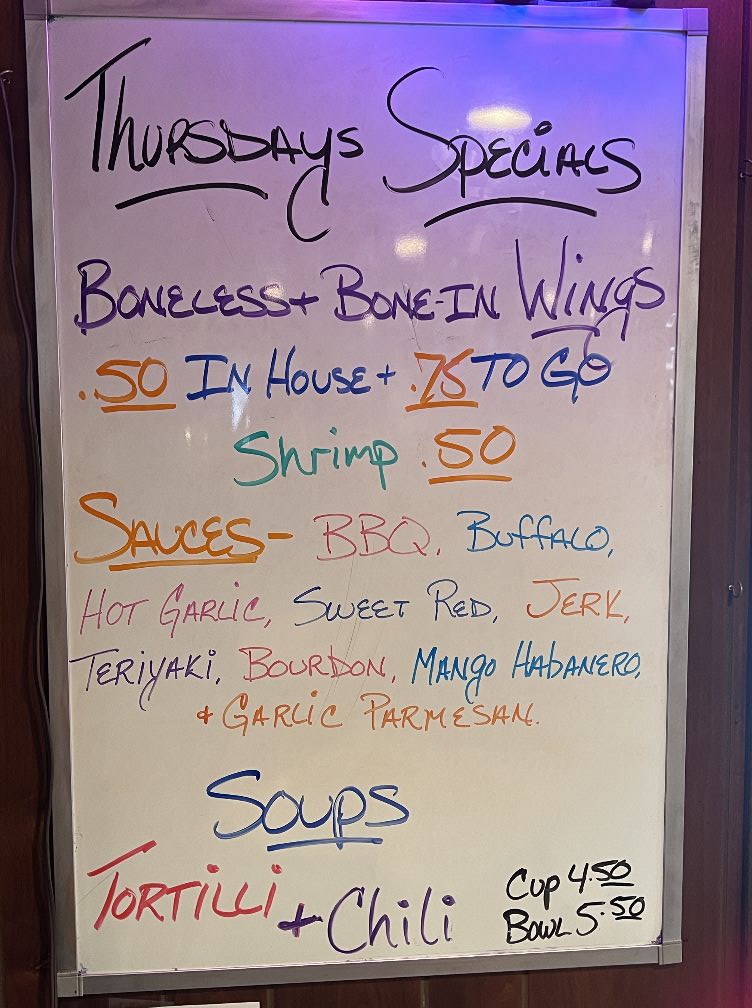 Thursdays Specials
Boneless + Bone-In Wings
.50 In House + .75 To Go
Shrimp .50
Sauces - BBQ, Buffalo,
Hot Garlic, Sweet Red, Jerk,
Teriyaki, Bourdon, Mango Habanero,
+ Garlic Parmesan.
Soups
Tortilli + Chili
Cup 4.50
Bowl 5.50